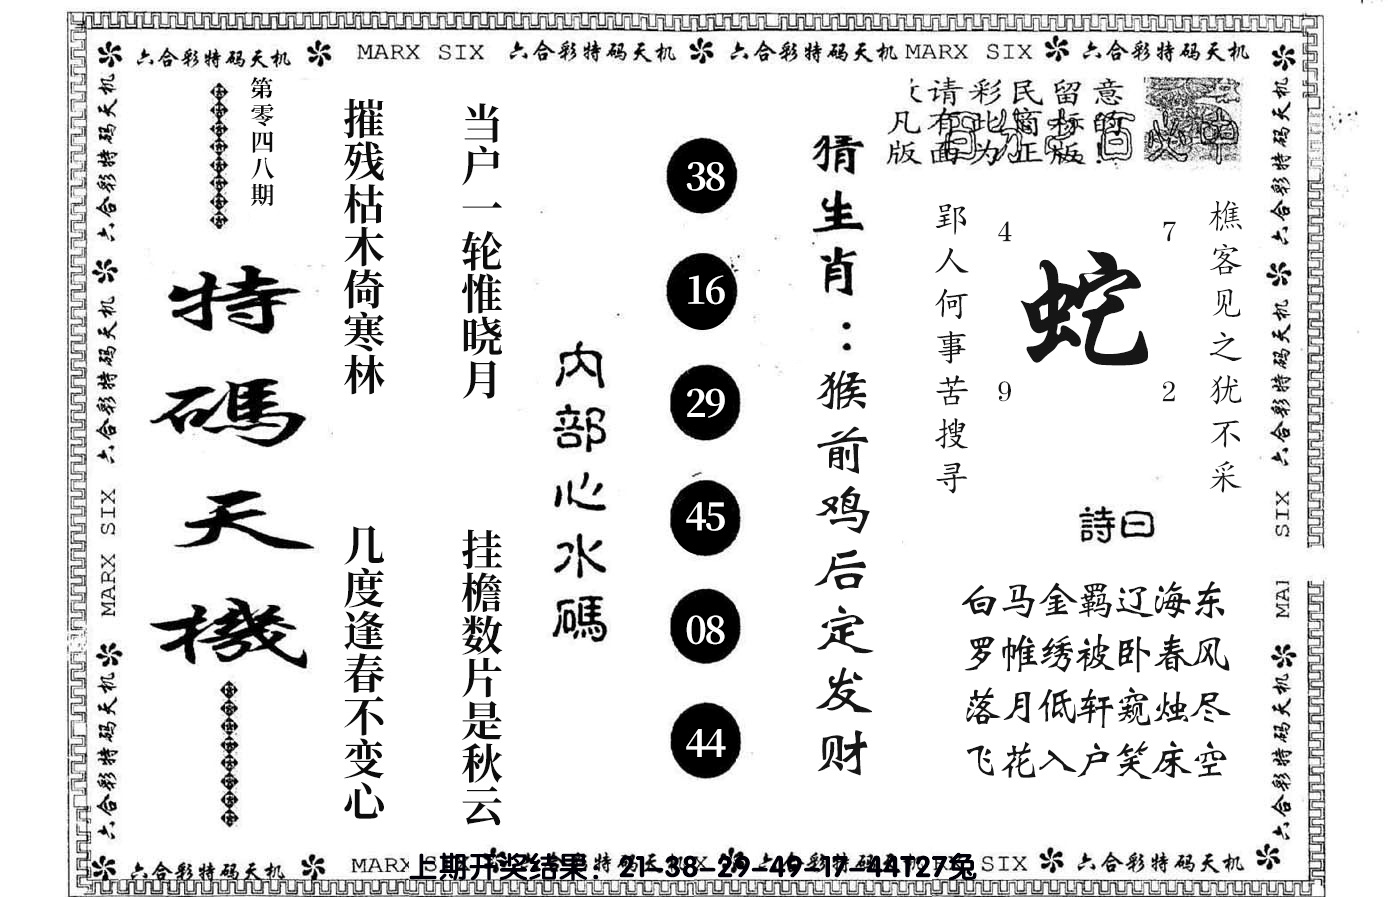 六合彩特码天机 MARX SIX 六合彩特码天机 六合彩特码天机 MARX SIX 六合彩特码天机
六合彩特码天机
六合彩特码天机
MARX SIX
六合彩特码天机
第零四八期
特碼天機
摧残枯木倚寒林
几度逢春不变心
当户一轮惟晓月
挂檐数片是秋云
内部心水碼
38
16
29
45
08
44
猜生肖:猴前鸡后定发财
请彩民留意
凡有此商标的
版面为正版!
郢人何事苦搜寻
4 7
蛇
9 2
樵客见之犹不采
詩曰
白马金羁辽海东
罗帷绣被卧春风
落月低轩窥烛尽
飞花入户笑床空
六合彩特码天机
六合彩特码天机
SIX
MA
六合彩特码天机
六合彩特码天机 MARX SIX 六合彩特码天机 SIX 六合彩特码天机
上期开奖结果:21-38-29-49-17-44T27兔